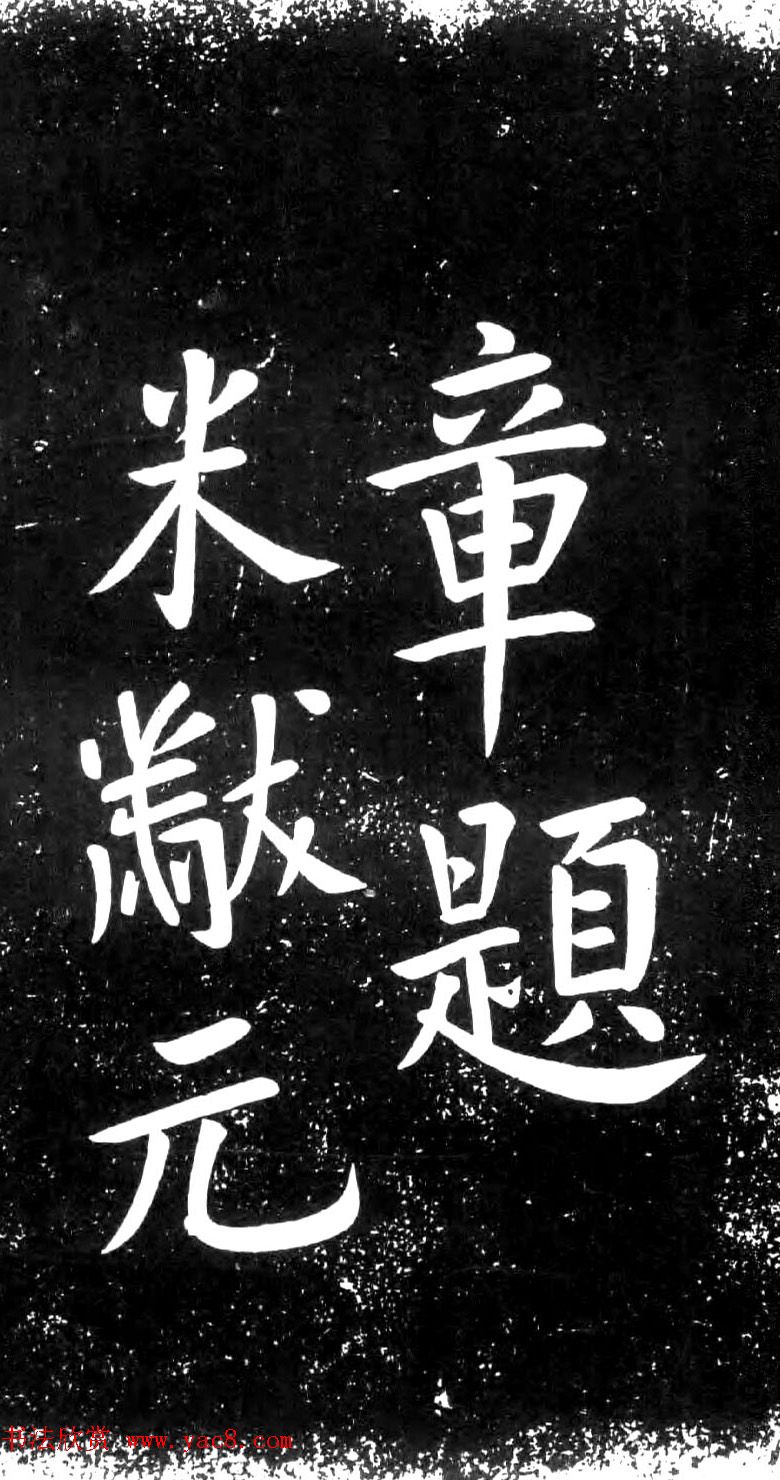 章題
米黻元
书法欣赏 www.yac8.com